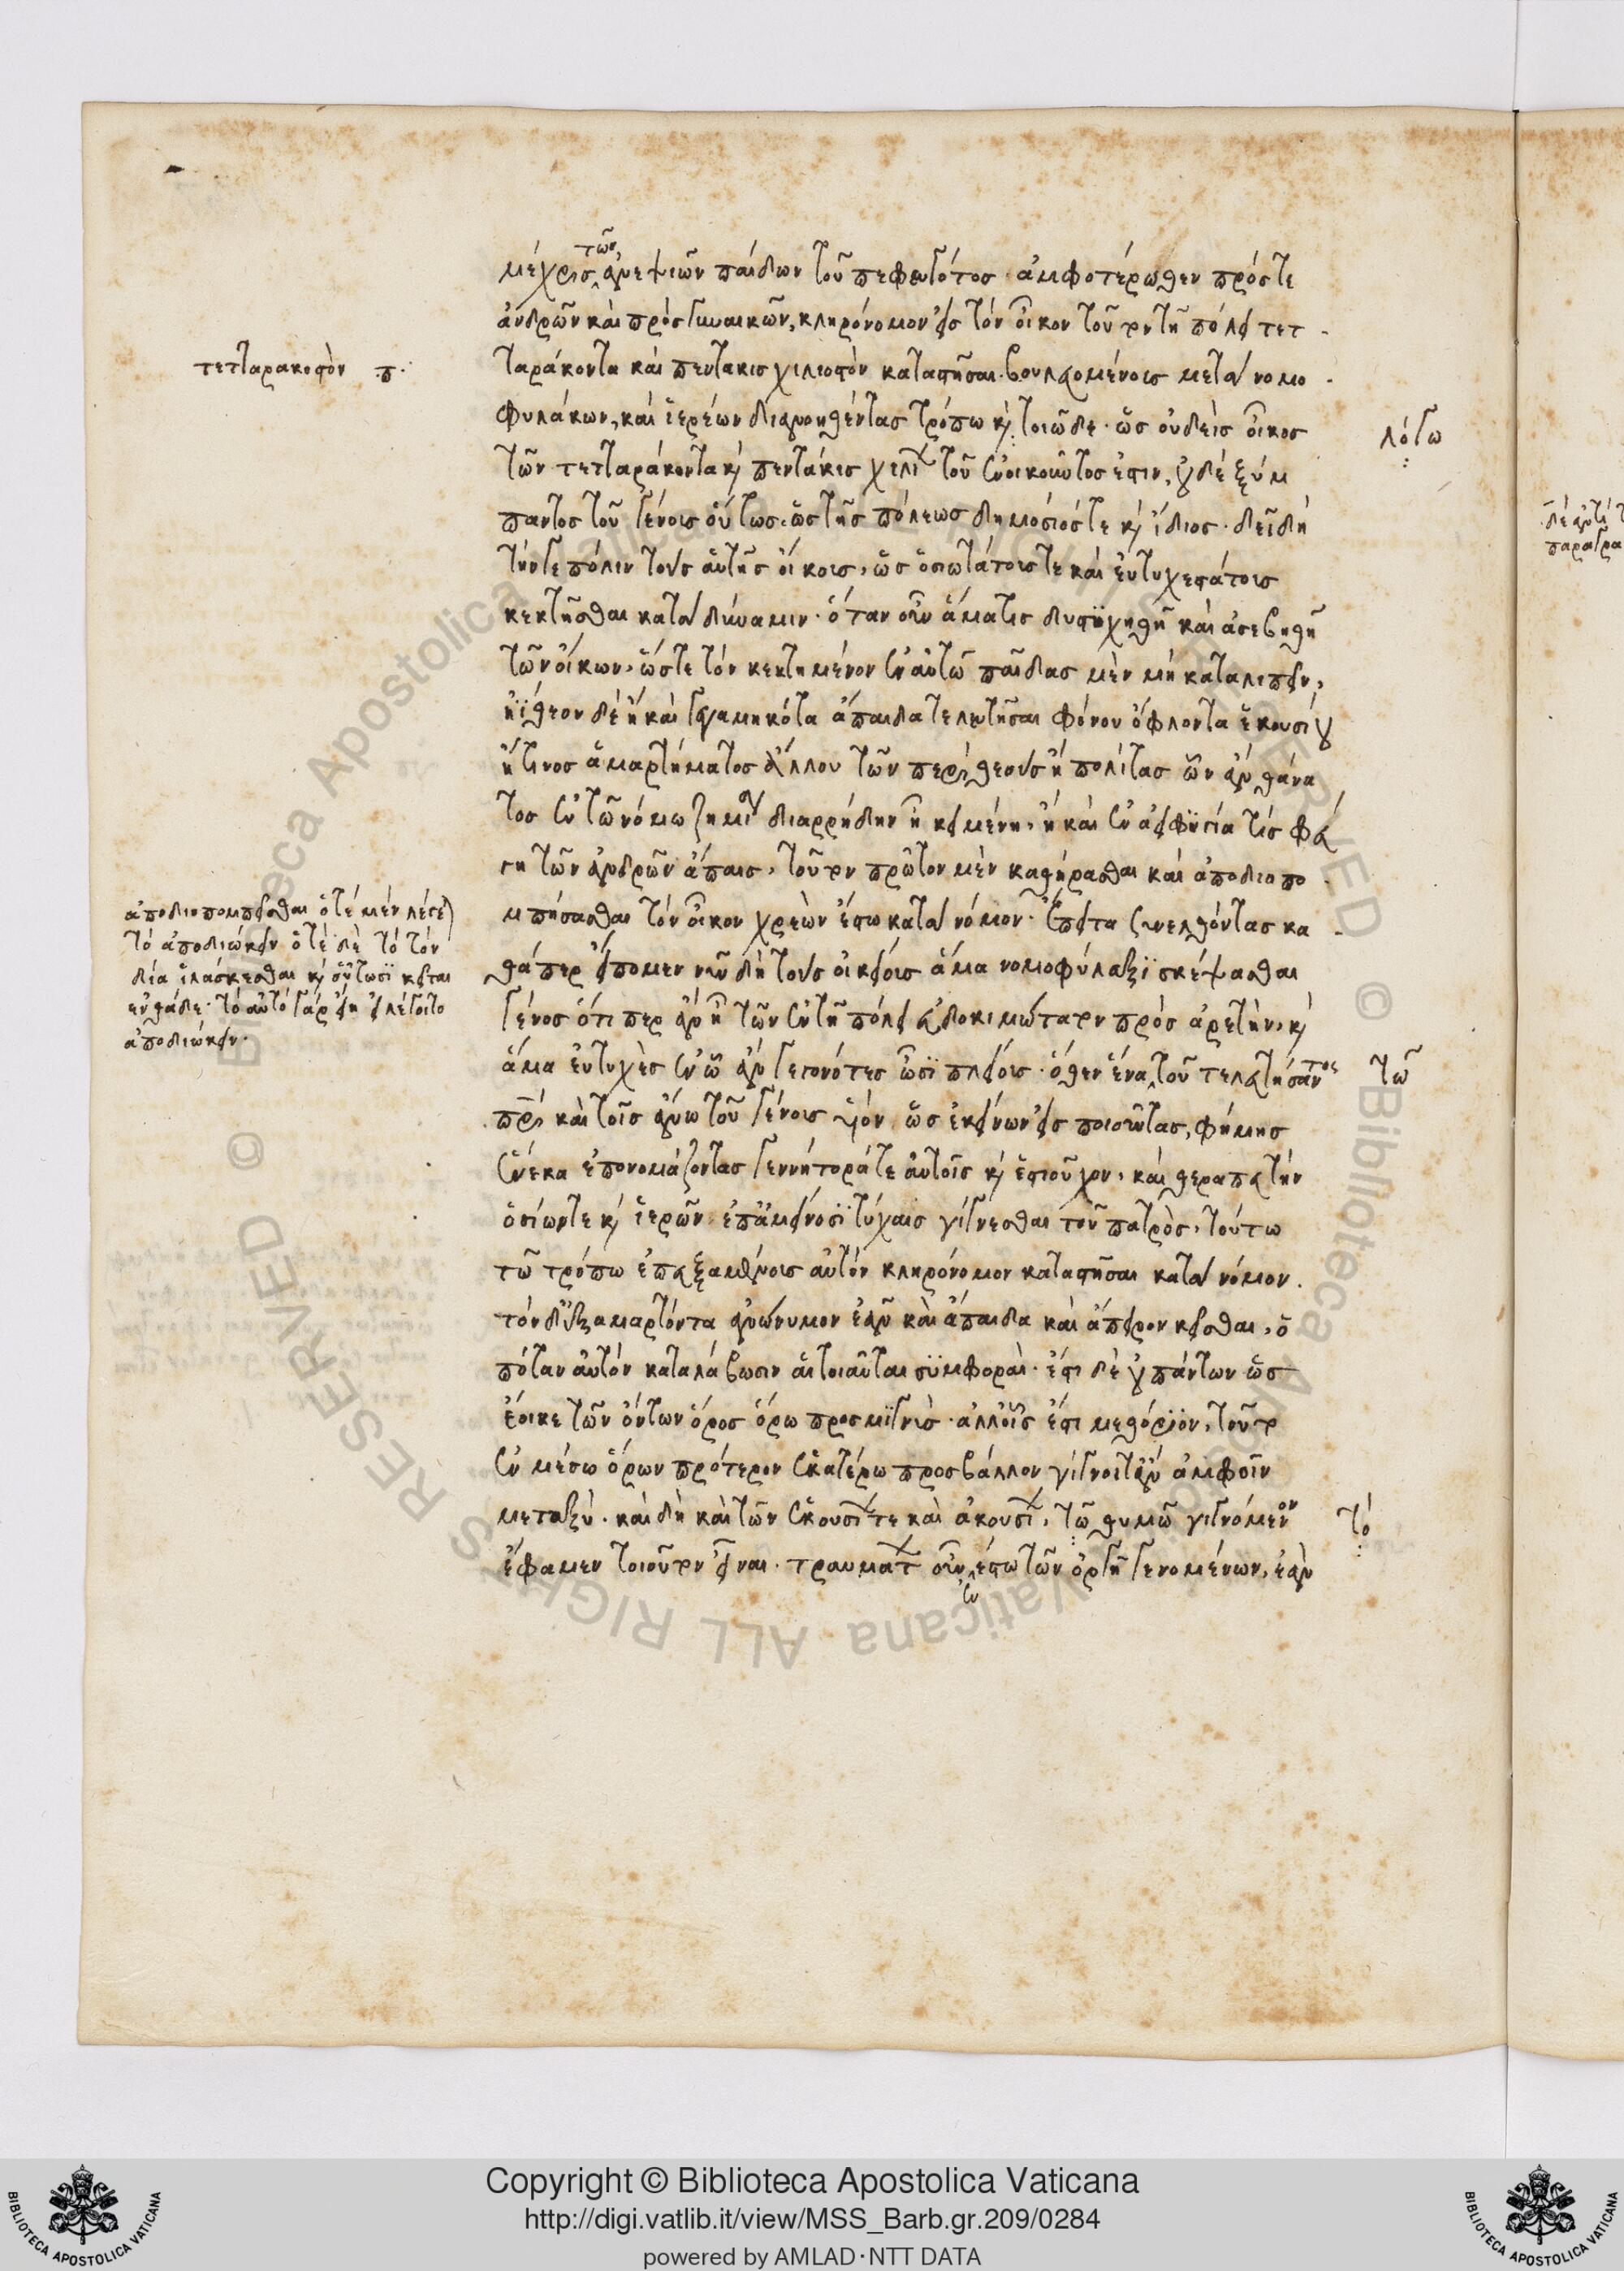 τῶν
μέχρις ἀνεψιῶν παίδων τοῦ πεφευγότος ἀμφοτέρωθεν πρόστε
ἀνδρῶν καὶ πρὸς γυναικῶν, κληρόνομον εἰς τὸν οἶκον τοῦτον τῇ πόλει τετ
τετταρακοστὸν π.
ταράκοντα καὶ πεντακισχιλιοστὸν καταστῆσαι βουλευομένοις μετὰ νομο
φυλάκων, καὶ ἱερέων διανοηθέντας τρόπω καὶ τοιῶδε · ὡς οὐδεὶς οἶκος
λόγω
τῶν τετταράκοντα καὶ πεντάκις χιλί τοῦ ἐνοικοῦντος ἐστιν, οὐδὲ ξύμ
παντος τοῦ γένους οὕτως, ὡς τῆς πόλεως δημόσιόςτε καὶ ἴδιος · δεῖ δὴ
τήνγε πόλιν τοὺς αὑτῆς οἴκους, ὡς ὁσιωτάτουςτε καὶ εὐτυχεστάτους
κεκτῆσθαι κατὰ δύναμιν · ὅταν οὖν ἅματις δυστυχηθῇ καὶ ἀσεβηθῇ
τῶν οἴκων, ὥστε τὸν κεκτημένον ἐν αὐτῶ παῖδας μὲν μὴ καταλιπεῖν,
ἠΐθεον δὲ ἢ καὶ γεγαμηκότα ἄπαιδα τελευτῆσαι φόνου ὀφλόντα ἑκουσίου
ἤτινος ἁμαρτήματος ἄλλου τῶν περὶ θεοὺς ἢ πολίτας ὧν ἂν θάνα
τος ἐν τῶ νόμω ζημία διαρρήδην ἢ κειμένη, ἢ καὶ ἐν ἀειφυγία τίς φεύ
γη τῶν ἀνδρῶν ἄπαις, τοῦτον πρῶτον μὲν καθήρασθαι καὶ ἀποδιοπο
μπήσασθαι τὸν οἶκον χρεὼν ἔστω κατὰ νόμον · ἔπειτα συνελθόντας κα
θάπερ εἴπομεν νῦν δὴ τοὺς οἰκείους ἅμα νομοφύλαξι σκέψασθαι
γένος ὅτι περ ἂν ἦ τῶν ἐν τῇ πόλει εὐδοκιμώτατον πρὸς ἀρετὴν, καὶ
ἅμα εὐτυχὲς ἐν ᾧ ἂν γεγονότες ὦσι πλείους · ὅθεν ἕνα τοῦ τελευτήσαντος
τῶ
πρὶ καὶ τοῖς ἄνω τοῦ γένους υἱὸν ὡς ἐκείνων εἰς ποιοῦντας, φήμης
ἕνεκα ἐπονομάζοντας γεννήτοράτε αὐτοῖς καὶ ἑστιοῦχον, καὶ θεραπευτὴν
ὁσίωντε καὶ ἱερῶν ἐπ' ἀμείνοσι τύχαις γίγνεσθαι τοῦ πατρὸς, τούτω
τῶ τρόπω ἐπευξαμένους αὐτὸν κληρόνομον καταστῆσαι κατὰ νόμον.
τὸν δ' ἐξαμαρτόντα ἀνώνυμον ἐᾶν καὶ ἄπαιδα καὶ ἄμοιρον κεῖσθαι, ὁ
πόταν αὐτὸν καταλάβωσιν αἱ τοιαῦται συμφοραὶ · ἔστι δὲ οὐ πάντων ὡς
ἔοικε τῶν ὄντων ὅρος ὅρω προσμιγνὺς · ἀλλ' οἷς ἔστι μεθόριον, τοῦτο
ἐν μέσω ὅρων πρότερον ἑκατέρω προσβάλλον γίγνοιτ' ἂν ἀμφοῖν
μεταξὺ · καὶ δὴ καὶ τῶν ἑκουσίτε καὶ ἀκουσί, τῶ θυμῶ γιγνόμενον
τὸ
ἔφαμεν τοιοῦτον εἶναι · τραυματ οὖν ἔστω τῶν ὀργῇ γενομένων, ἐὰν
ἐν
ἀποδιοπομπεῖσθαι ὁτὲ μὲν λέγει
τὸ ἀποδιώκειν ὁτὲ δὲ τὸ τὸν
δία ἱλάσκεσθαι καὶ οὕτωσὶ κεῖται
ἐνθάδε · τὸ αὐτὸ γὰρ εἴη εἰ λέγοιτο
ἀποδιώκειν.
παραγρα
Copyright © Biblioteca Apostolica Vaticana
http://digi.vatlib.it/view/MSS_Barb.gr.209/0284
powered by AMLAD·NTT DATA
BIBLIOTECA APOSTOLICA VATICANA
BIBLIOTECA APOSTOLICA VATICANA
© Biblioteca Apostolica Vaticana ALL RIGHTS RESERVED